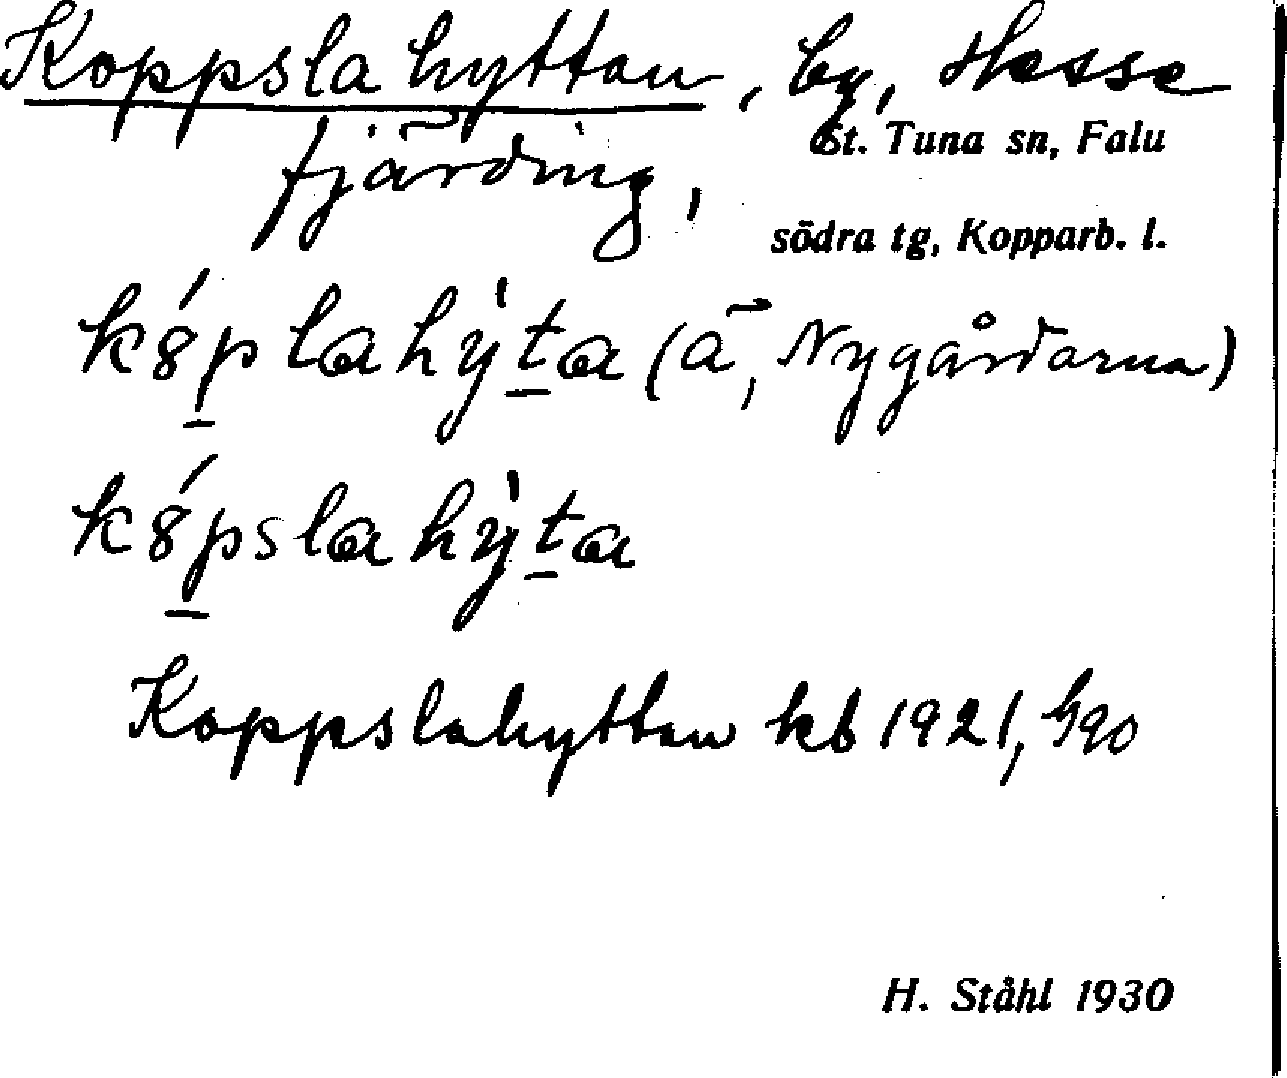 Koppslahyttan, by, Hesse
fjärding,
St. Tuna sn, Falu
södra tg, Kopparb. l.
(ä, Nygårdarna)
Koppslahyttan kb 1921,
H. Ståhl 1930